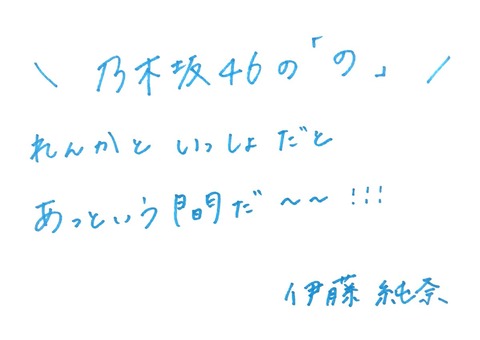 \ 乃木坂46の「の」 /
れんかと いっしょだと
あっという間だ~~!!!
伊藤 純奈